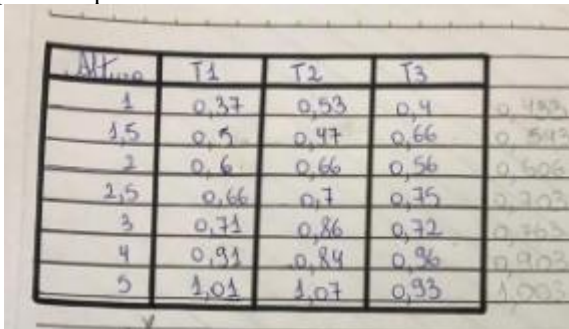 Altura T1 T2 T3
1 0,37 0,53 0,4 0,433
1,5 0,5 0,47 0,66 0,543
2 0,6 0,66 0,56 0,606
2,5 0,66 0,7 0,75 0,703
3 0,71 0,86 0,72 0,763
4 0,91 0,84 0,96 0,903
5 1,01 1,07 0,93 1,003